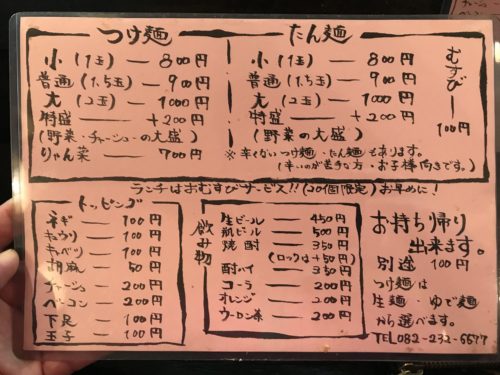 つけ麺
小(1玉) — 800円
普通(1.5玉) — 900円
大(2玉) — 1000円
特盛 — +200円
(野菜・チャーシューの大盛)
りゃん菜 — 700円
たん麺
小(1玉) — 800円
普通(1.5玉) — 900円
大(2玉) — 1000円
特盛 — +200円
(野菜の大盛)
※辛くないつけ麺・たん麺もあります。
(辛いのが苦手な方・お子様向きです。)
むすび — 100円
ランチはおむすびサービス!!(20個限定)お早めに!
トッピング
ネギ — 100円
キュウリ — 100円
キャベツ — 100円
胡麻 — 50円
チャーシュー — 200円
ベーコン — 200円
下足 — 100円
玉子 — 100円
飲み物
生ビール — 450円
瓶ビール — 500円
焼酎 — 350円
(ロックは+50円)
酎ハイ — 350円
コーラ — 200円
オレンジ — 200円
ウーロン茶 — 200円
お持ち帰り
出来ます。
別途 100円
つけ麺は
生麺・ゆで麺
から選べます。
TEL082-232-6677